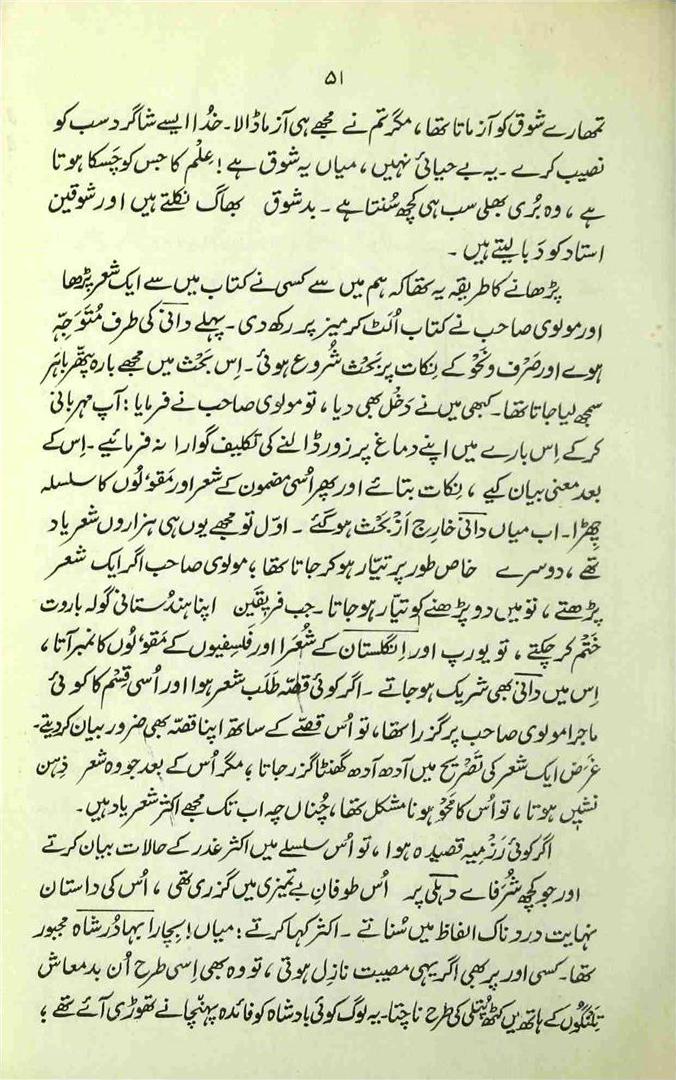 ۵۱
تمھارے شوق کو آزماتا تھا، مگر تم نے مجھے ہی آزما ڈالا۔ خُدا ایسے شاگرد سب کو
نصیب کرے۔ یہ بے حیائی نہیں، میاں یہ شوق ہے! عِلْم کا جس کو چَسکا ہوتا
ہے، وہ بُری بھلی سب ہی کچھ سُنتا ہے۔ بد شوق بھاگ نکلتے ہیں اور شوقین
استاد کو دَبا لیتے ہیں۔
پڑھانے کا طریقہ یہ تھا کہ ہم میں سے کسی نے کتاب میں سے ایک شعر پڑھا
اور مولوی صاحب نے کتاب اُلَٹ کر میز پر رکھ دی۔ پہلے دانی کی طرف مُتَوَجِّہ
ہوے اور صَرْف و نَحْو کے نِکات پر بَحْث شُروع ہوئی۔ اِس بَحْث میں مجھے بارہ پتّھر باہَر
سمجھ لیا جاتا تھا۔ کبھی میں نے دَخْل بھی دیا، تو مولوی صاحب نے فرمایا: آپ مہربانی
کر کے اِس بارے میں اپنے دماغ پر زور ڈالنے کی تکلیف گوارا نہ فرمائیے۔ اِس کے
بعد معنی بیان کیے، نِکات بتائے اور پھر اُسی مضمون کے شعر اور مَقوٗلوں کا سلسلہ
چِھڑا۔ اب میاں دانی خارِج اَزْ بَحْث ہو گئے۔ اوّل تو مجھے یوں ہی ہزاروں شعر یاد
تھے، دوسرے خاص طور پر تیّار ہو کر جاتا تھا؛ مولوی صاحب اگر ایک شعر
پڑھتے، تو میں دو پڑھنے کو تیّار ہو جاتا۔ جب فریقَین اپنا ہندُستانی گولہ باروت
خَتْم کر چکتے، تو یورپ اور اِنگلستان کے شُعَرا اور فلسفیوں کے مَقوٗلوں کا نمبر آتا،
اِس میں دانی بھی شریک ہو جاتے۔ اگر کوئی قصّہ طَلَب شعر ہوا اور اُسی قِسْم کا کوئی
ماجرا مولوی صاحب پر گزرا تھا، تو اُس قصّے کے ساتھ اپنا قصّہ بھی ضرور بیان کر دیتے۔
غَرَض ایک شعر کی تَصْرِیح میں آدھ آدھ گھنٹا گزر جاتا؛ مگر اُس کے بعد جو وہ شعر ذِہن
نشیں ہوتا، تو اُس کا مَحْو ہونا مشکل تھا، چُناں چہ اب تک مجھے اکثر شعر یاد ہیں۔
اگر کوئی رَزْمیہ قصیدہ ہوا، تو اُس سلسلے میں اکثر غدر کے حالات بیان کرتے
اور جو کچھ شُرَفاے دہلی پر اُس طوفانِ بے تمیزی میں گزری تھی، اُس کی داستان
نہایت درد ناک الفاظ میں سُناتے۔ اکثر کہا کرتے: میاں! بِچارا بہادُر شاہ مجبور
تھا۔ کسی اور پر بھی اگر یہی مصیبت نازِل ہوتی، تو وہ بھی اِسی طرح اُن بدمعاش
تِلَنگوں کے ہاتھ میں کٹھ پُتلی کی طرح ناچتا۔ یہ لوگ کوئی بادشاہ کو فائدہ پہنچانے تھوڑی آئے تھے؛